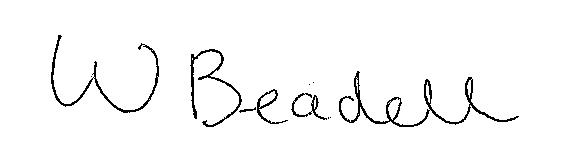 W Beadell